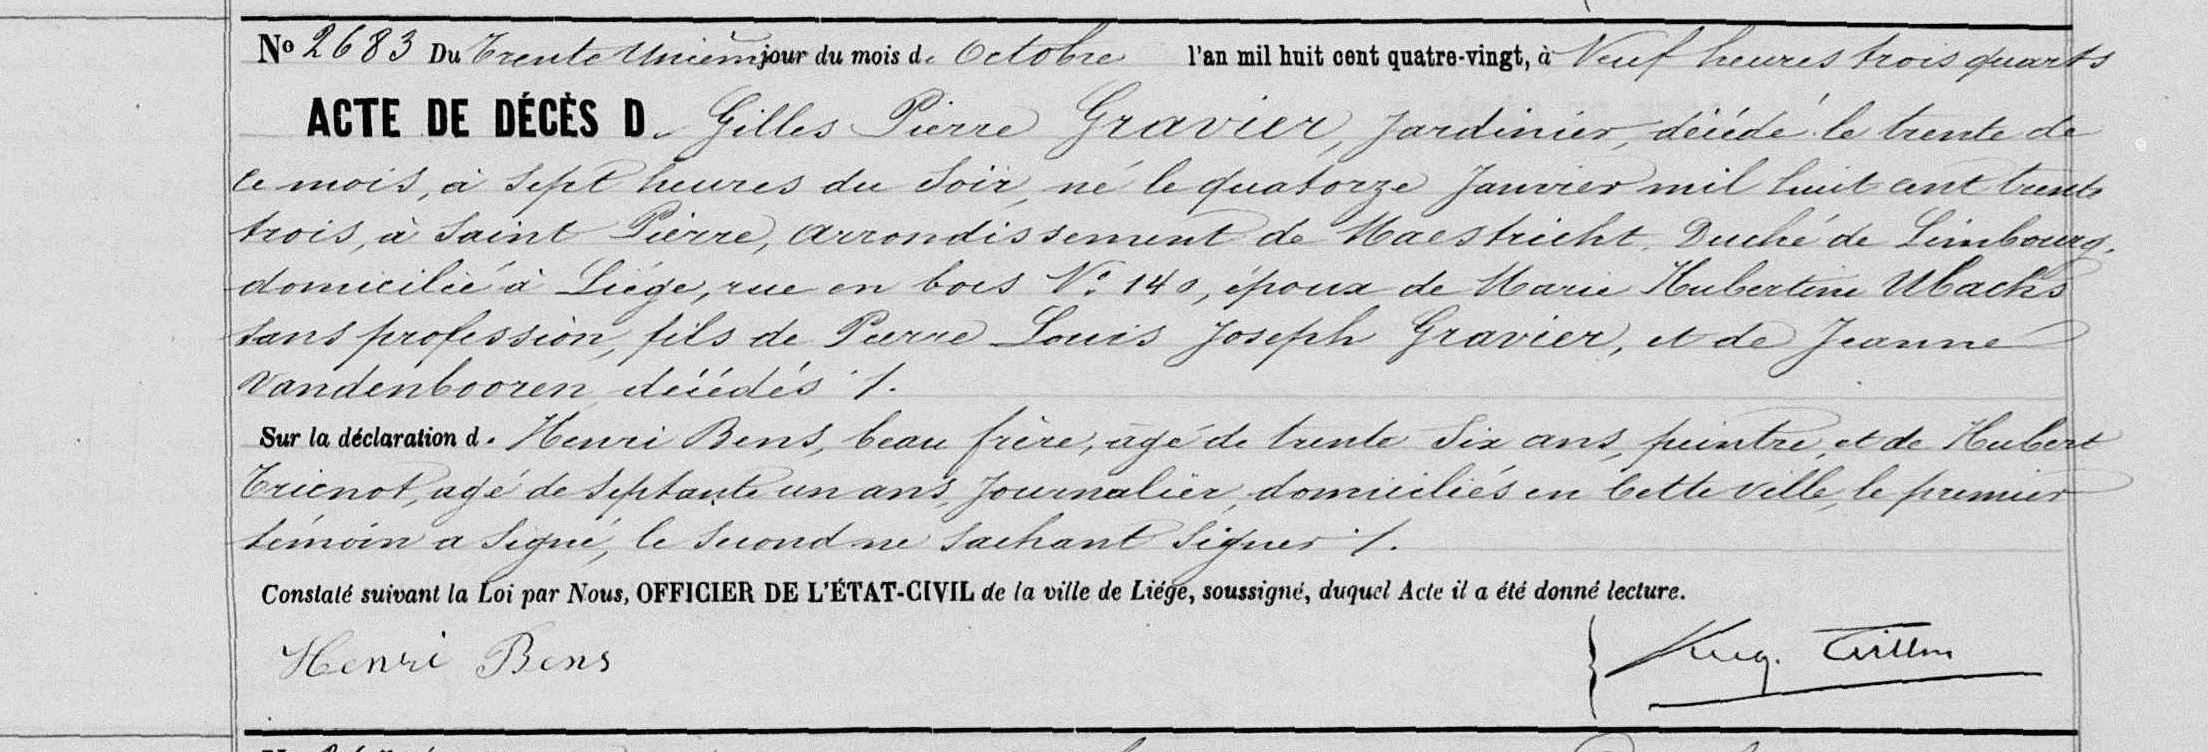 No 2683 Du Trente Unièm jour du mois d. Octobre l'an mil huit cent quatre-vingt, à Neuf heures trois quarts
ACTE DE DÉCÈS D. Gilles Pierre Gravier, Jardinier, décédé le trente de
ce mois, à Sept heures du Soir, né le quatorze Janvier mil huit cent trente
trois, à Saint Pierre, arrondissement de Maestricht, Duché de Limbourg,
domicilié à Liége, rue en bois No 140, époux de Marie Hubertine Ubachs
Sans profession, fils de Pierre Louis Joseph Gravier, et de Jeanne
Vandenbooren, décédés ./.
Sur la déclaration d. Henri Bens, beau frère, agé de trente Six ans, peintre, et de Hubert
Tricnot, agé de Septante un ans, Journalier, domiciliés en Cette ville, le premier
témoin a Signé, le Second ne Sachant Signer ./.
Constaté suivant la Loi par Nous, OFFICIER DE L'ÉTAT-CIVIL de la ville de Liége, soussigné, duquel Acte il a été donné lecture.
Henri Bens